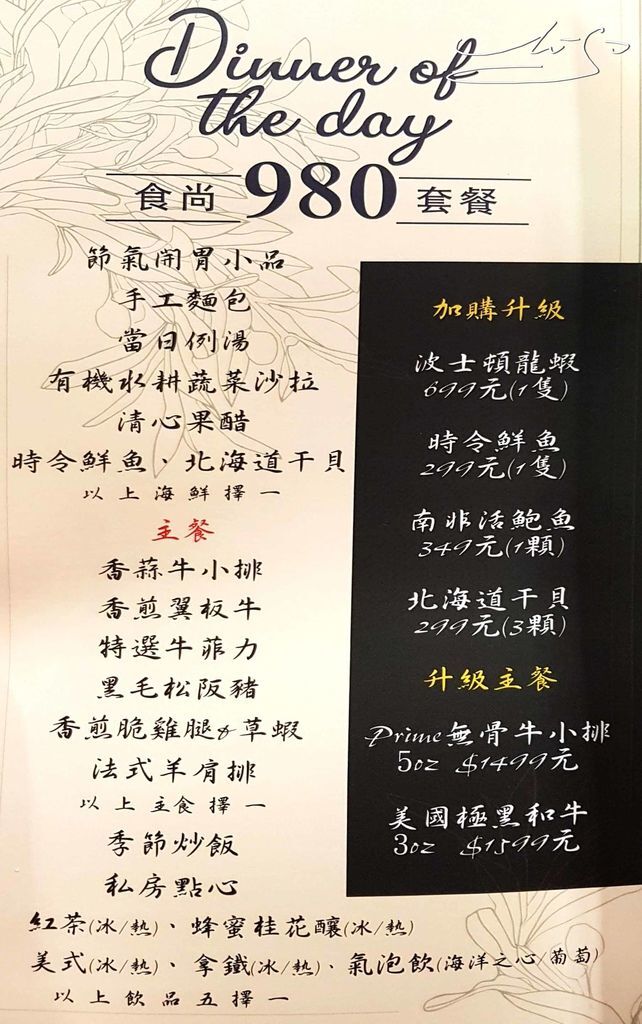 Dinner of
the day
食尚 980 套餐
節氣開胃小品
手工麵包
當日例湯
有機水耕蔬菜沙拉
清心果醋
時令鮮魚、北海道干貝
以上海鮮擇一
主餐
香蒜牛小排
香煎翼板牛
特選牛菲力
黑毛松阪豬
香煎脆雞腿&草蝦
法式羊肩排
以上主食擇一
季節炒飯
私房點心
紅茶(冰/熱)、蜂蜜桂花釀(冰/熱)
美式(冰/熱)、拿鐵(冰/熱)、氣泡飲(海洋之心/葡萄)
以上飲品五擇一
加購升級
波士頓龍蝦
699元(1隻)
時令鮮魚
299元(1隻)
南非活鮑魚
349元(1顆)
北海道干貝
299元(3顆)
升級主餐
Prime無骨牛小排
5oz $1499元
美國極黑和牛
3oz $1599元